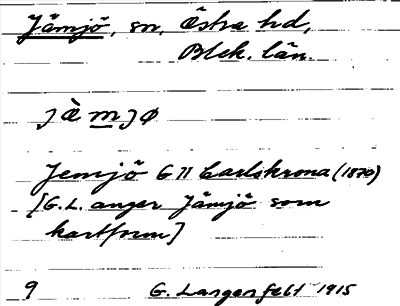 Jämjö, sn, Östra hd,
Blek. län.
j ä̀ m j ø
Jemjö G 11 Carlskrona (1870)
[G.L. anger Jämjö som
kartform]
9 G. Langenfelt 1915